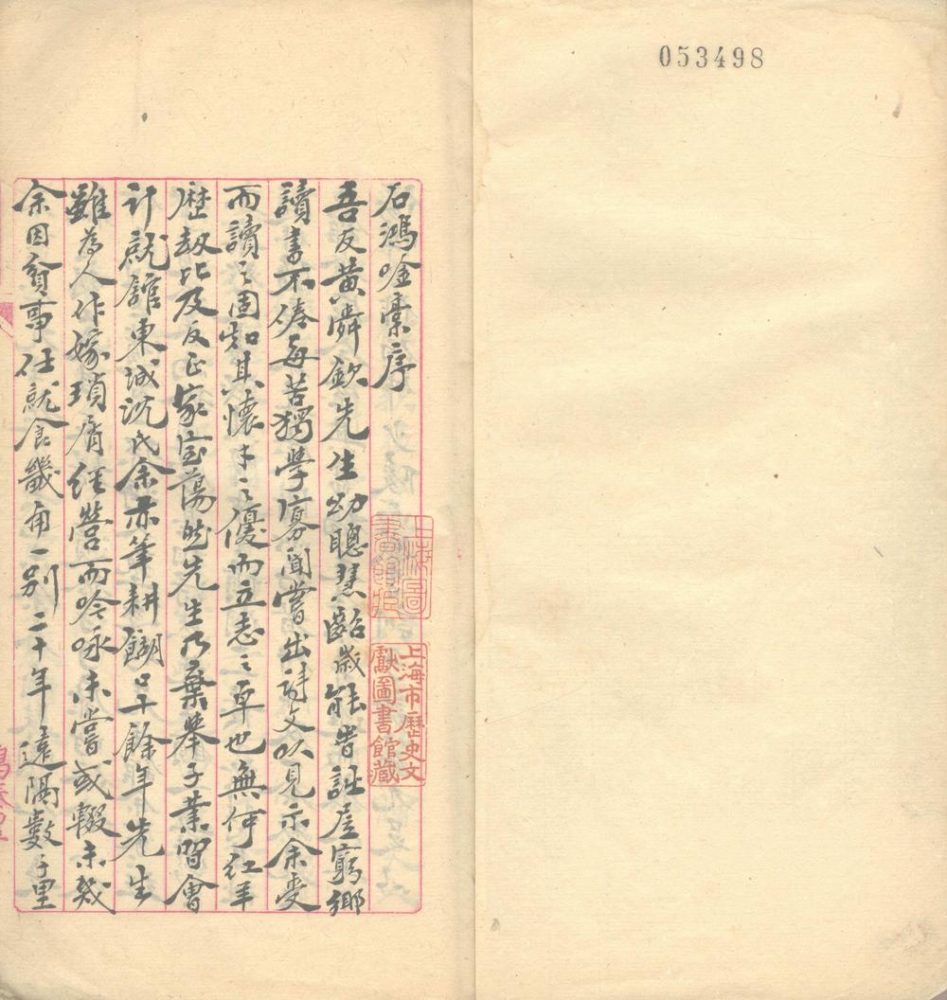 053498
石鴻唫稾序
吾友黄舜欽先生幼聰慧齠歲能背誦居窮鄉
讀書不倦每苦獨學寡聞嘗出詩文以見示余受
而讀之固知其懷才之優而立志之卓也無何紅羊
歷劫比及反正家室蕩然先生乃棄舉子業習會
計就館東城沈氏余亦筆耕餬口十餘年先生
雖為人作嫁瑣屑經營而吟咏未嘗或輟未幾
余因貧事任就食畿甸一別二十年遠隔數千里
上海圖書館藏
上海市歷史文獻圖書館藏